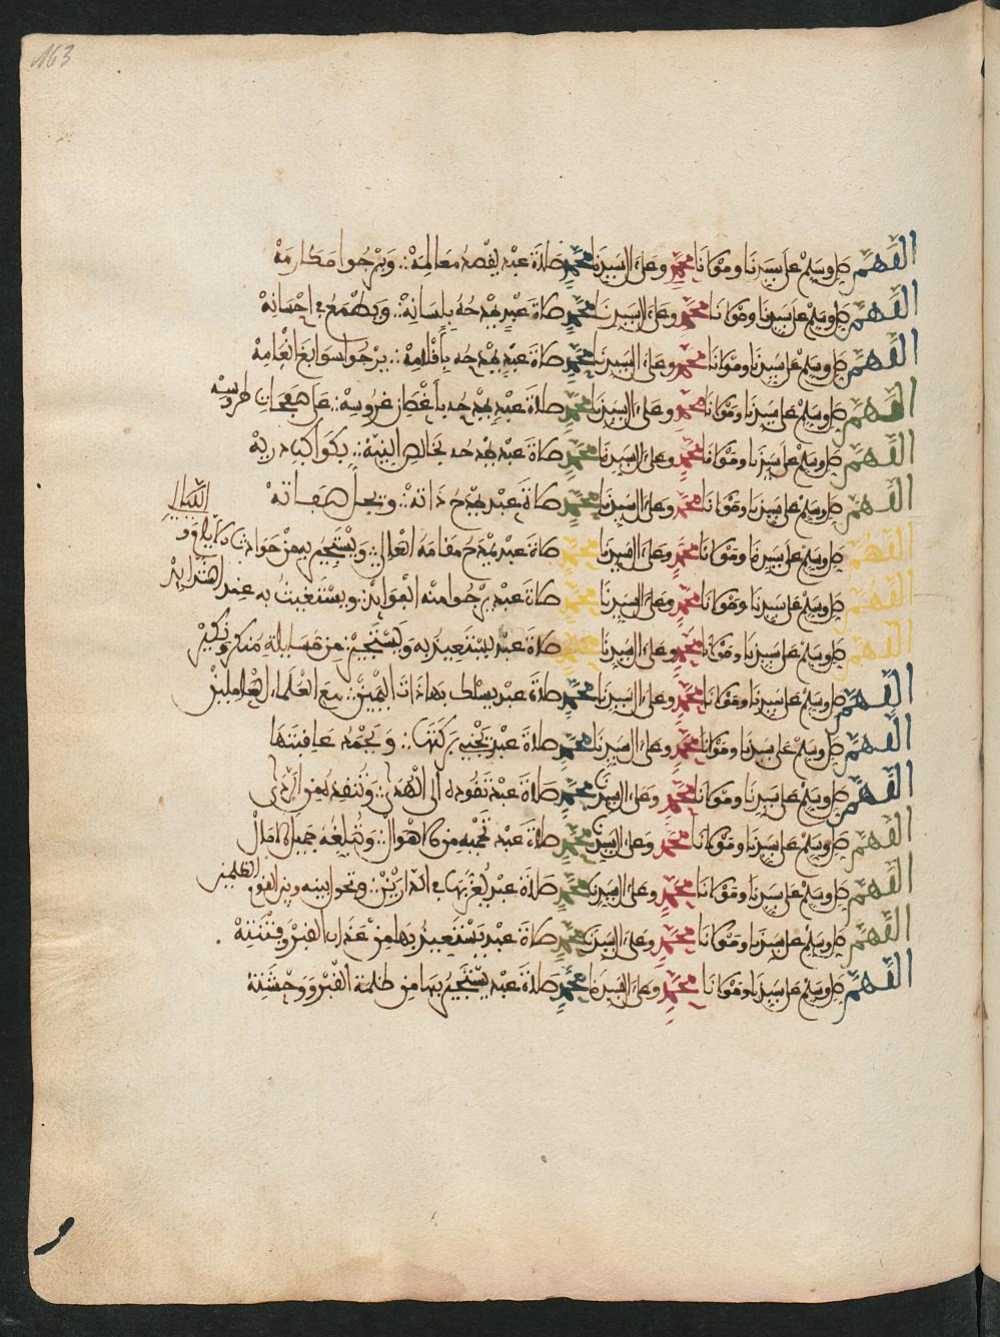 163
اللهم صل وسلم على سيدنا ومولانا محمد وعلى آل سيدنا محمد صلاة عبد يقصد معالمه ∴ ويرجوا مكارمه
اللهم صل وسلم على سيدنا ومولانا محمد وعلى آل سيدنا محمد صلاة عبد يمدحه بلسانه ∴ ويطمع في إحسانه
اللهم صل وسلم على سيدنا ومولانا محمد وعلى آل سيدنا محمد صلاة عبد يمدحه بأقلامه ∴ يرجوا سوابغ انعامه
اللهم صل وسلم على سيدنا ومولانا محمد وعلى آل سيدنا محمد صلاة عبد يمدحه بأغصان غروسه ∴ على صفحات طروسه
اللهم صل وسلم على سيدنا ومولانا محمد وعلى آل سيدنا محمد صلاة عبد يمدحه بخالص النية ∴ بكواكب درية
اللهم صل وسلم على سيدنا ومولانا محمد وعلى آل سيدنا محمد صلاة عبد يمدح ذاته ∴ ويجل صفاته
اللهم صل وسلم على سيدنا ومولانا محمد وعلى آل سيدنا محمد صلاة عبد يمدح مقامه العال ∴ ويستجير به من حوادث الأيام و الليال
اللهم صل وسلم على سيدنا ومولانا محمد وعلى آل سيدنا محمد صلاة عبد يرجوا منه الفوايد ∴ ويستغيث به عند الشدايد
اللهم صل وسلم على سيدنا ومولانا محمد وعلى آل سيدنا محمد صلاة عبد يستعيذ به ويستجير من مسايلة منكر ونكير
اللهم صل وسلم على سيدنا ومولانا محمد وعلى آل سيدنا محمد صلاة عبد يسلك بها ذات اليمين ∴ مع العلماء العاملين
اللهم صل وسلم على سيدنا ومولانا محمد وعلى آل سيدنا محمد صلاة عبد يجني بركتها ∴ ويحمد عاقبتها
اللهم صل وسلم على سيدنا ومولانا محمد وعلى آل سيدنا محمد صلاة عبد تقوده الى الهدى ∴ وتنقذه من الردى
اللهم صل وسلم على سيدنا ومولانا محمد وعلى آل سيدنا محمد صلاة عبد تحميه من الاهوال ∴ وتبلغه جميل الامال
اللهم صل وسلم على سيدنا ومولانا محمد وعلى آل سيدنا محمد صلاة عبد يعز بها في الدارين ∴ وتحول بينه وبين القوم الظلمين
اللهم صل وسلم على سيدنا ومولانا محمد وعلى آل سيدنا محمد صلاة عبد يستعيذ بها من عذاب القبر وفتنته
اللهم صل وسلم على سيدنا ومولانا محمد وعلى آل سيدنا محمد صلاة عبد يستجير بها من ظلمة القبر ووحشته